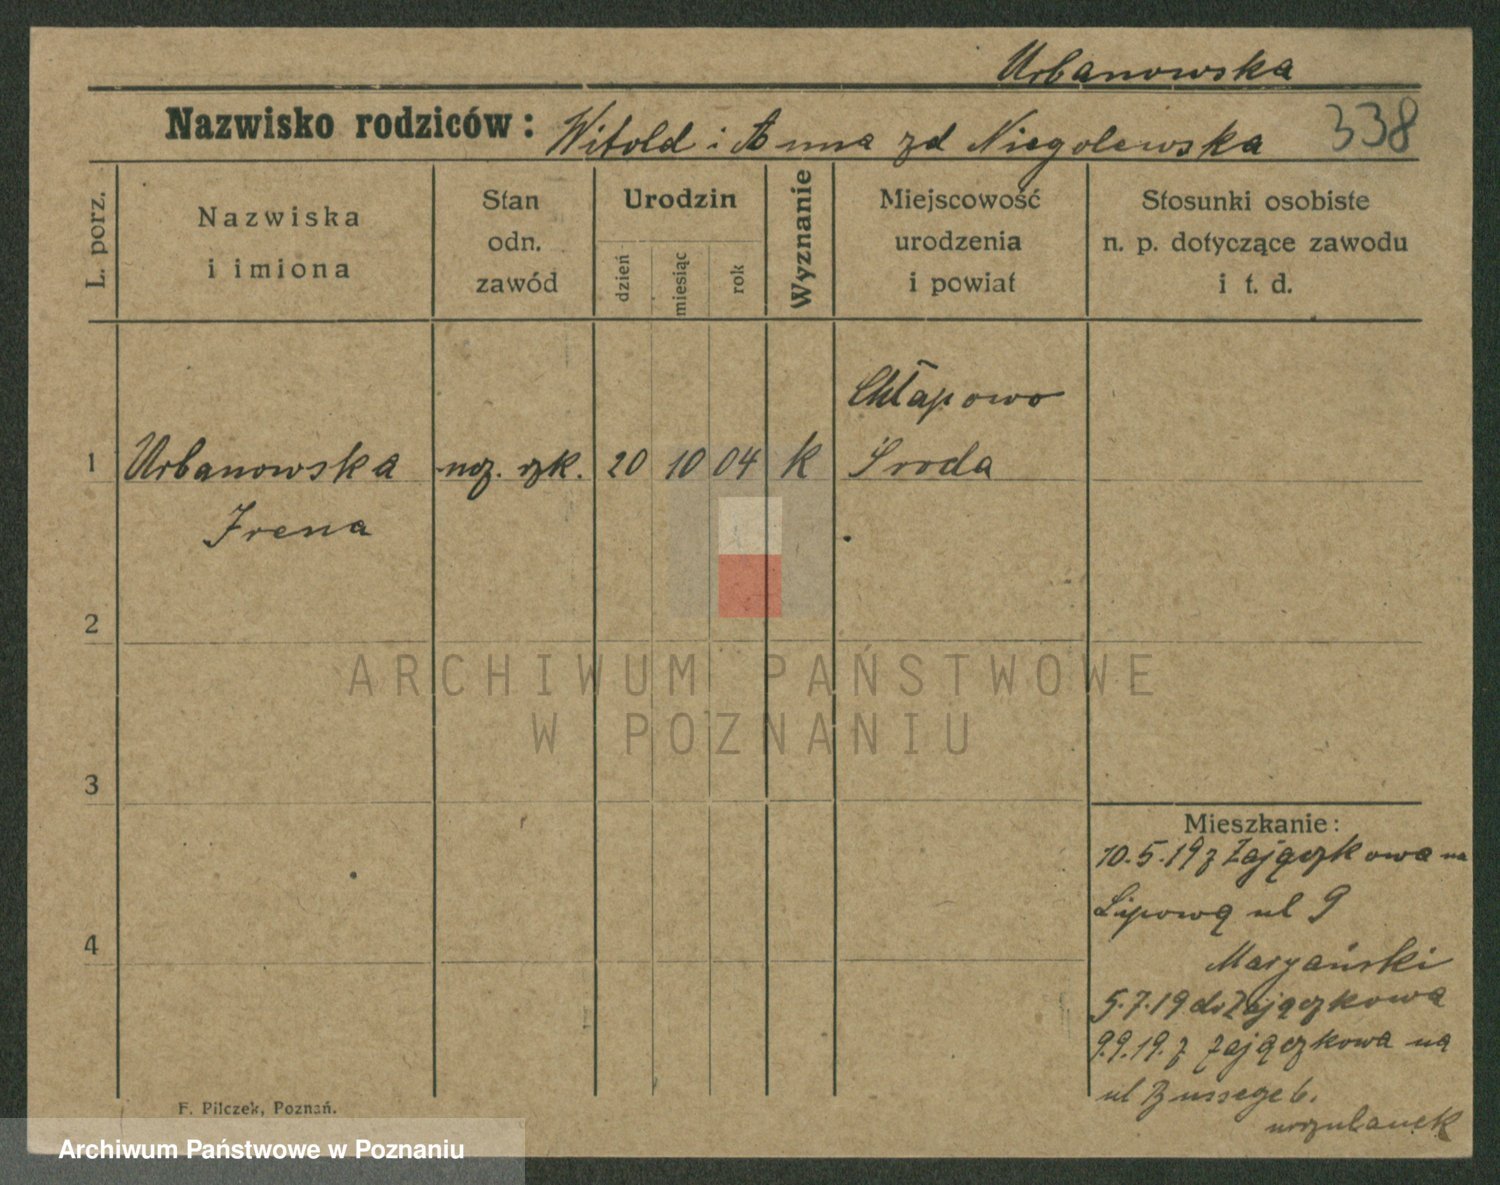 Urbanowska
Nazwisko rodziców: Witold i Anna zd Niegolewska 338
L. porz.
Nazwiska
i imiona
Stan
odn.
zawód
Urodzin
dzień
miesiąc
rok
Wyznanie
Miejscowość
urodzenia
i powiat
Stosunki osobiste
n. p. dotyczące zawodu
i t. d.
Chłapowo
1 Urbanowska ucz. szk. 20 10 04 k Sroda
Irena
2
3
4
ARCHIWUM PAŃSTWOWE
W POZNANIU
Mieszkanie:
10.5.19 z Zajączkowa na
Lipową ul 9
Maryański
5.7.19 do Zajączkowa
9.9.19. z Zajączkowa na
ul 6.
F. Pilczek, Poznań.
Archiwum Państwowe w Poznaniu